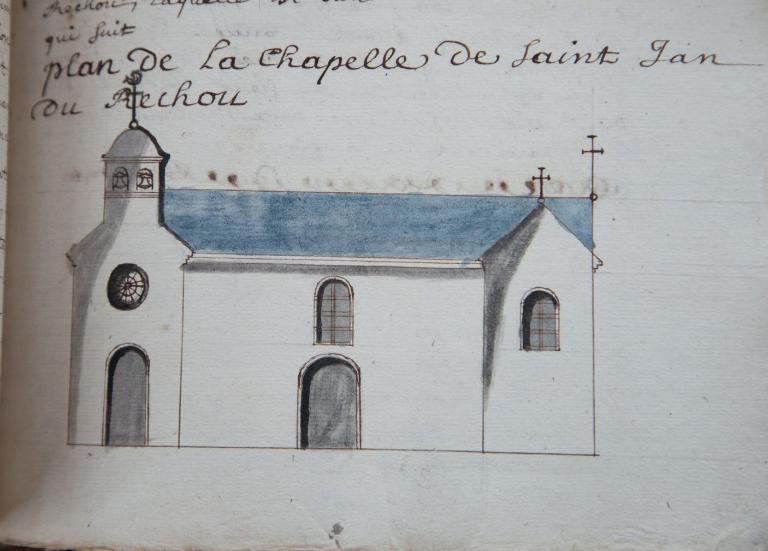 Rechou, laquelle
qui suit
plan de La Chapelle de Saint Jan
Du Rechou